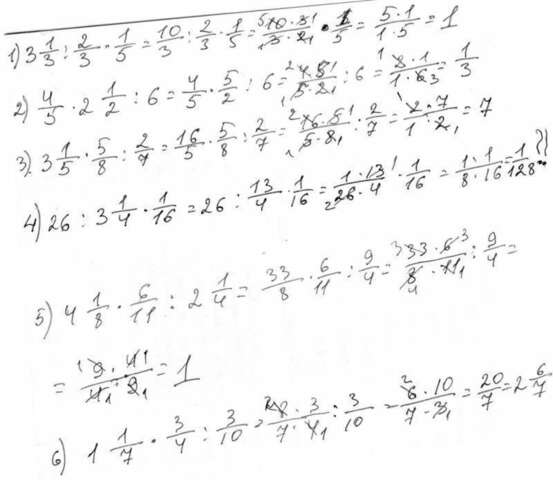 1) 3 1/3 : 2/3 · 1/5 = 10/3 : 2/3 · 1/5 = 10·3/3·2 · 1/5 = 5·1/1·5 = 1
2) 4/5 · 2 1/2 : 6 = 4/5 · 5/2 : 6 = 4·5/5·2 : 6 = 2·1/1·6 = 1/3
3) 3 1/5 · 5/8 : 2/7 = 16/5 · 5/8 : 2/7 = 16·5/5·8 : 2/7 = 2·7/1·2 = 7
4) 26 : 3 1/4 · 1/16 = 26 : 13/4 · 1/16 = 1·13/26·4 · 1/16 = 1·1/8·16 = 1/128
5) 4 1/8 · 6/11 : 2 1/4 = 33/8 · 6/11 : 9/4 = 33·6/8·11 : 9/4 =
= 9·4/4·9 = 1
6) 1 1/7 · 3/4 : 3/10 = 8·3/7·4 : 3/10 = 6·10/7·3 = 20/7 = 2 6/7